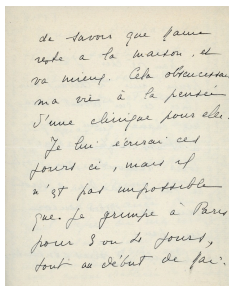 de savoir que Jaime
reste a la maison, et
va mieux. Cela obscurcissa
ma vie à la pensée
d'une clinique pour elle.
Je lui écrirai ces
jours ci, mais il
n'est pas impossible
que je grimpe à Paris
pour 3 ou 4 jours,
tout au début de